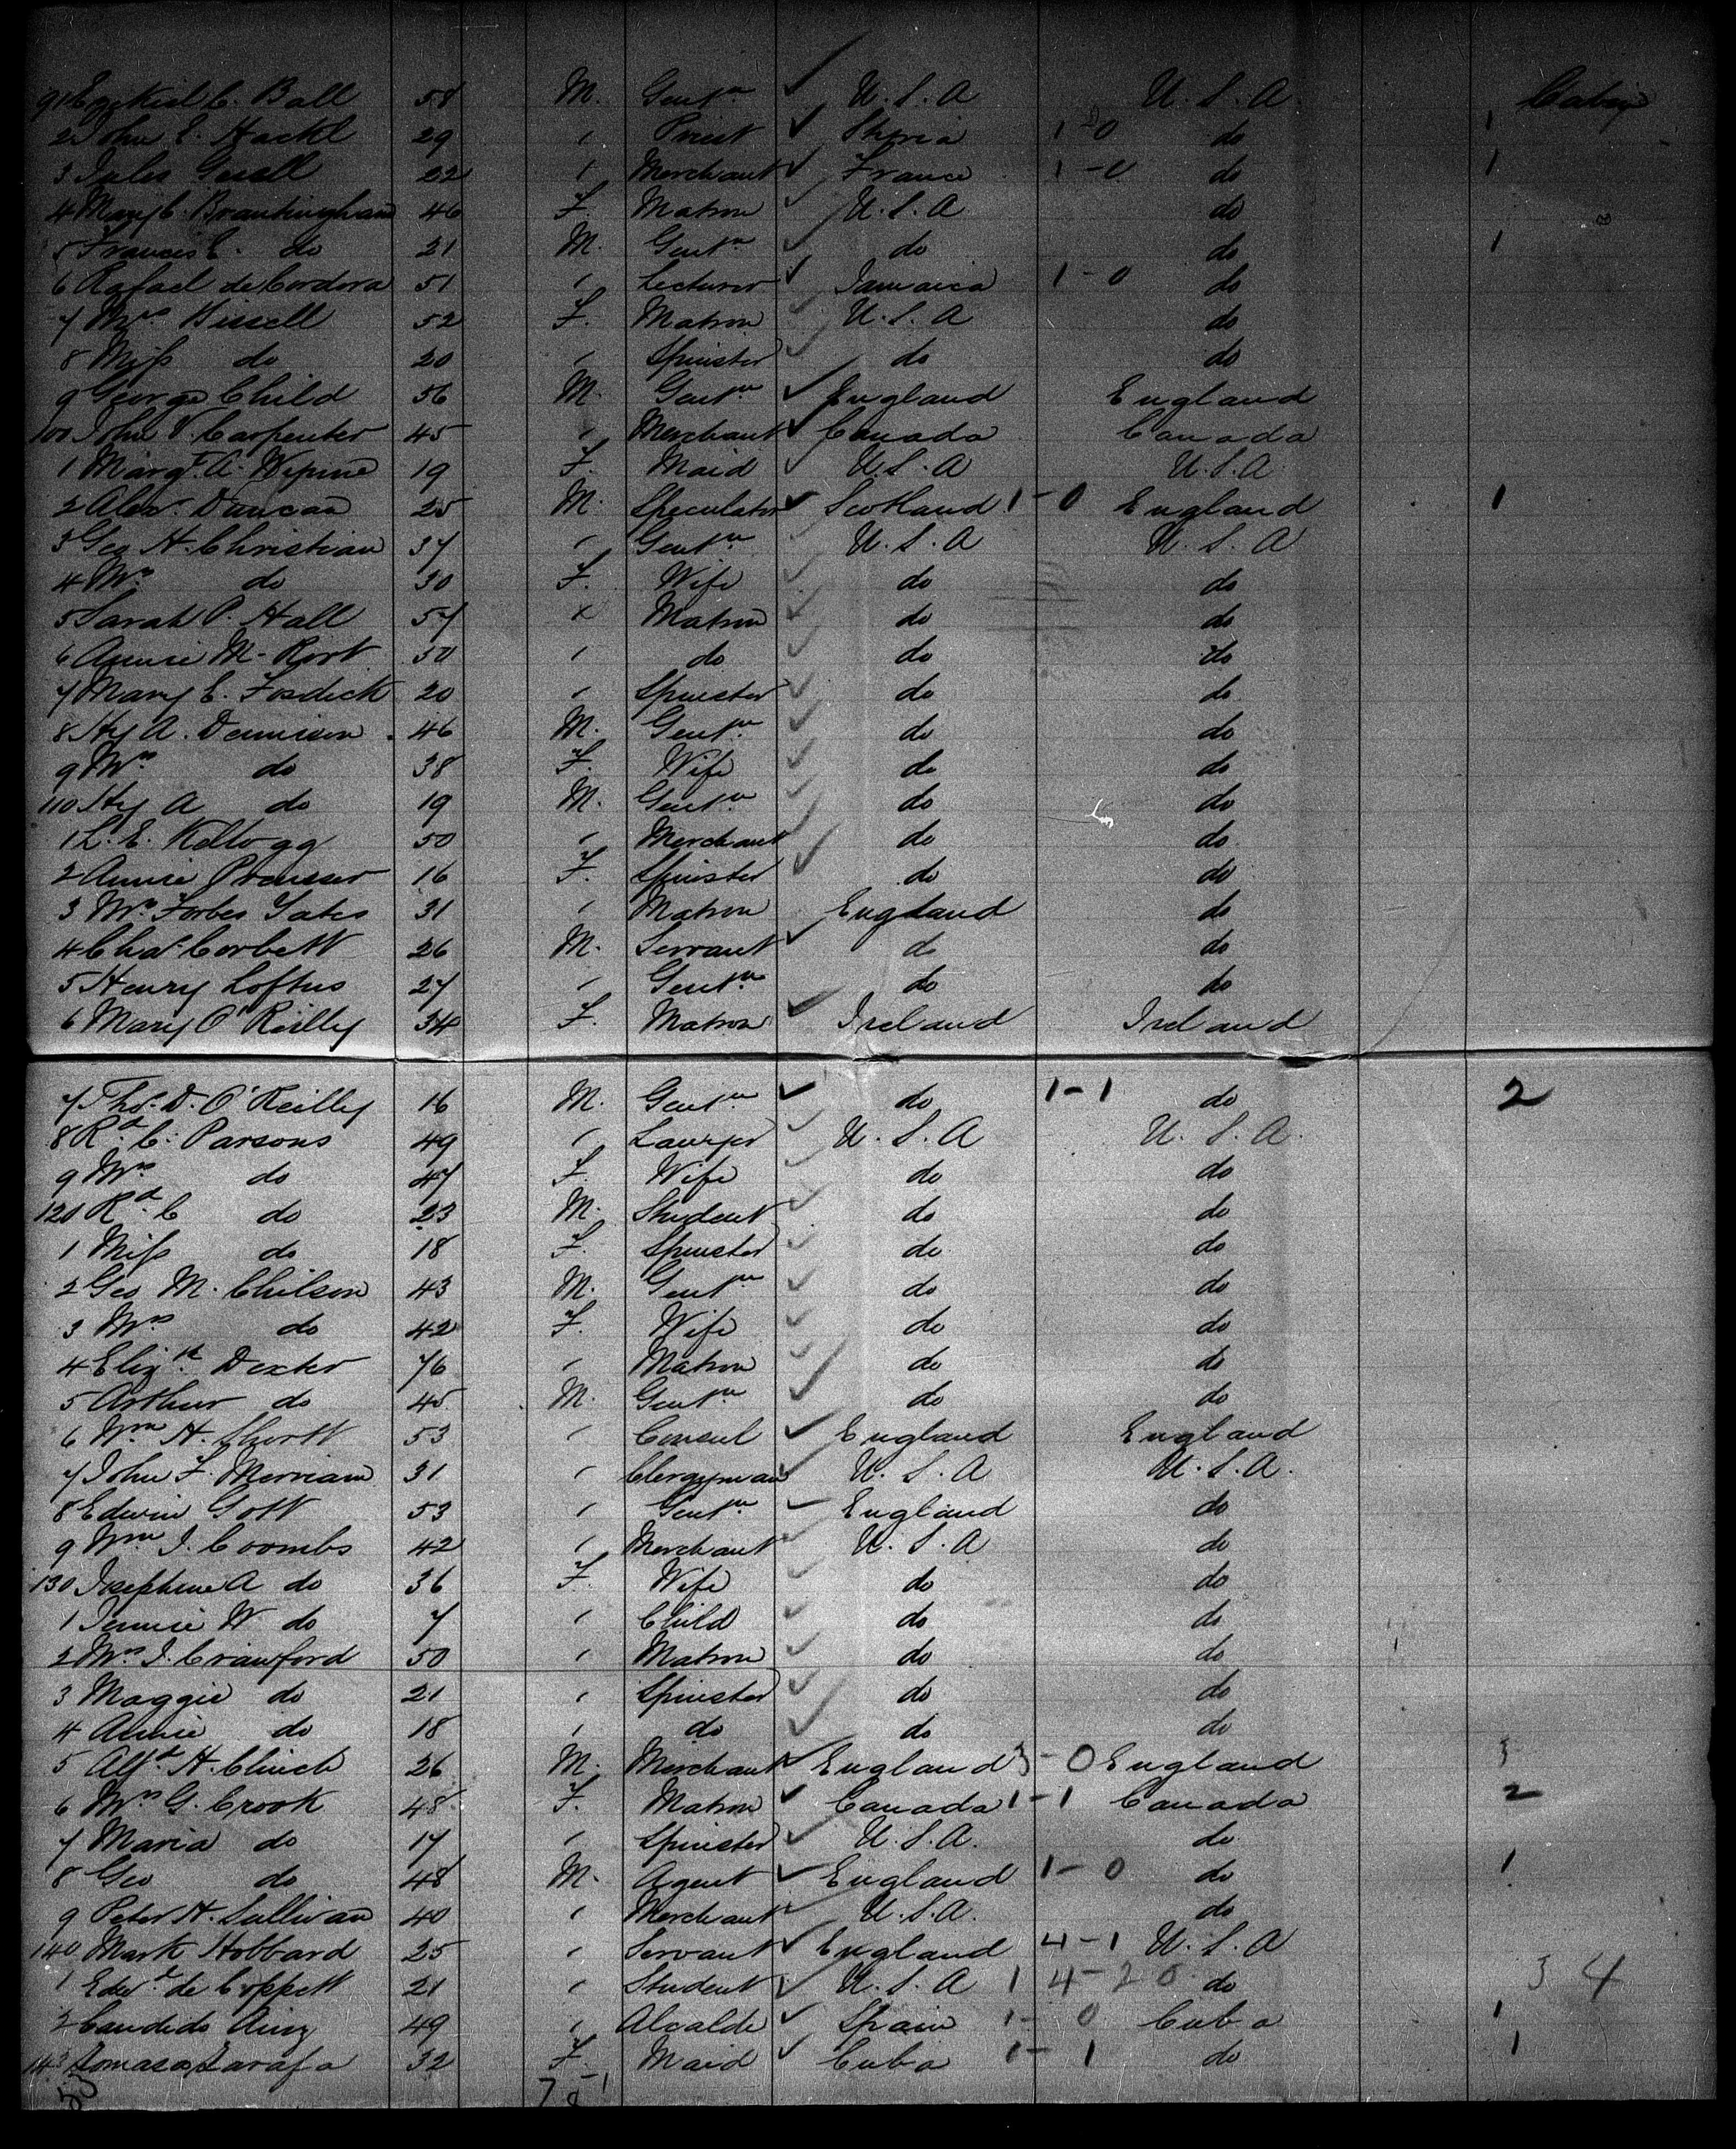 91 Ezekiel C. Ball 58 M. Gentn U.S.A U.S.A. Cabin
2 John E. Hackl 29 " Priest Styria 1-0 do 1
3 Jules Gesell 22 " Merchant France 1-0 do 1
4 Mary C. Brantingham 46 F. Matron U.S.A do
5 Francis E. do 21 M. Gentn do do 1
6 Rafael de Cordova 51 " Lecturer Jamaica 1-0 do
7 Mrs Bissell 52 F. Matron U.S.A do
8 Miss do 20 " Spinster do do
9 George Child 56 M. Gentn England England
100 John V. Carpenter 45 " Merchant Canada Canada
1 Margt A. 19 F. Maid U.S.A U.S.A
2 Alexr Duncan 25 M. Speculator Scotland 1-0 England 1
3 Geo H. Christian 37 " Gentn U.S.A U.S.A
4 Mrs do 30 F. Wife do do
5 Sarah P. Hall 57 " Matron do do
6 Annie M. 50 " do do do
7 Mary E. Fosdick 20 " Spinster do do
8 Hy A. Dennison 46 M. Gentn do do
9 Mrs do 38 F. Wife do do
110 Hy A do 19 M. Gentn do do
1 L. E. Kellogg 50 " Merchant do do
2 Annie Prousser 16 F. Spinster do do
3 Mrs Forbes Yates 31 " Matron England do
4 Chas Corbett 26 M. Servant do do
5 Henry Loftus 27 " Gentn do do
6 Mary O'Reilly 34 F. Matron Ireland Ireland
7 Thos. D. O'Reilly 16 M. Gentn do 1-1 do 2
8 Rd C. Parsons 49 " Lawyer U.S.A U.S.A.
9 Mrs do 47 F. Wife do do
120 Rd C do 23 M. Student do do
1 Miss do 18 F. Spinster do do
2 Geo M. Chilson 43 M. Gentn do do
3 Mrs do 42 F. Wife do do
4 Elizth Dexter 76 " Matron do do
5 Arthur do 45 M. Gentn do do
6 Wm H. Shortt 53 " Consul England England
7 John F. Merriam 31 " Clergyman U.S.A U.S.A.
8 Edwin Gott 53 " Gentn England do
9 Wm J. Coombs 42 " Merchant U.S.A do
130 Josephine A do 36 F. Wife do do
1 Jennie W do 7 " Child do do
2 Mrs J. Crawford 50 " Matron do do
3 Maggie do 21 " Spinster do do
4 Annie do 18 " do do do
5 Alfd H. Clinch 26 M. Merchant England 3-0 England 3
6 Mrs G. Crook 48 F. Matron Canada 1-1 Canada 2
7 Maria do 17 " Spinster U.S.A. do
8 Geo do 48 M. Agent England 1-0 do 1
9 Peter H. Sullivan 40 " Merchant U.S.A. do
140 Mark Hobbard 25 " Servant England 4-1 U.S.A
1 Edwd de Coppett 21 " Student U.S.A 1 4-20 do 3 4
2 Candido Ainz 49 " Alcalde Spain 1-0 Cuba 1
143 Tomasa Zarafa 32 F. Maid Cuba 1-1 do 1